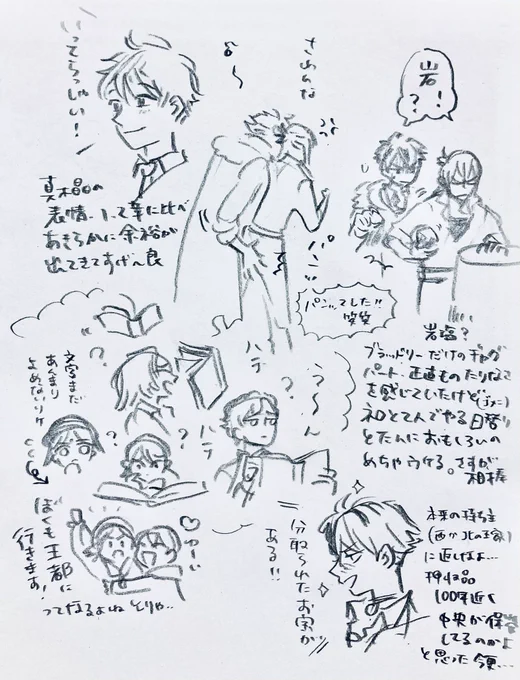 いってらっしゃい!
真木晶の
表情、1って章に比べ
あきらかに余裕が
出てきてすげー良
さわんな
パンッ
パンッてした!!
笑笑
岩
?!
岩塩?
ブラッドリーだけのギャグ
パート、正直ものたりなさ
を感じていたけど(ゴメン)
ネロとくんでやる日替り
とたんにおもしろいの
めちゃウケる。さすが
相棒
文字まだ
あんまり
よめないリケ
?
?
ハテ
ハテ
?
う〜ん
ぼくも王都
行きます!
ってなるよね そりゃ…
分取られたお宝が
ある!!
本来の持ち主
(西か北の王家)
に返しなよ…
押収品
100年近く
中央が保管
してるのかよ
と思った今更…